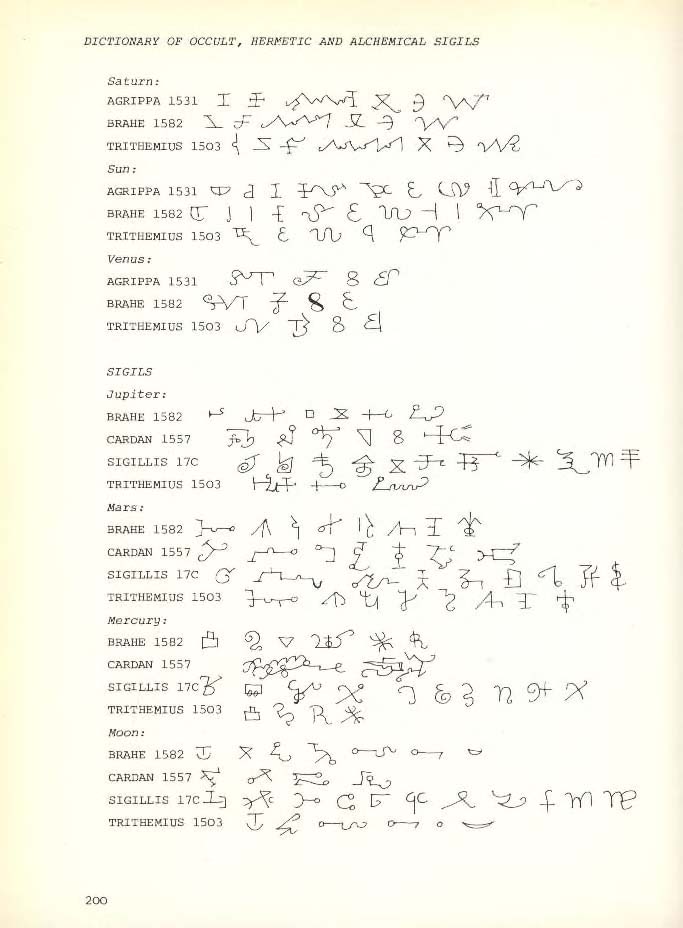 DICTIONARY OF OCCULT, HERMETIC AND ALCHEMICAL SIGILS
Saturn:
AGRIPPA 1531
BRAHE 1582
TRITHEMIUS 1503
Sun:
AGRIPPA 1531
BRAHE 1582
TRITHEMIUS 1503
Venus:
AGRIPPA 1531
BRAHE 1582
TRITHEMIUS 1503
SIGILS
Jupiter:
BRAHE 1582
CARDAN 1557
SIGILLIS 17C
TRITHEMIUS 1503
Mars:
BRAHE 1582
CARDAN 1557
SIGILLIS 17C
TRITHEMIUS 1503
Mercury:
BRAHE 1582
CARDAN 1557
SIGILLIS 17C
TRITHEMIUS 1503
Moon:
BRAHE 1582
CARDAN 1557
SIGILLIS 17C
TRITHEMIUS 1503
200